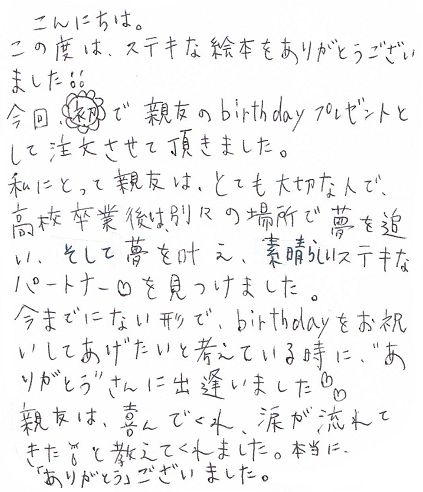 こんにちは。
この度は、ステキな絵本をありがとうござい
ました!!
今回、初で親友のbirthdayプレゼントと
して注文させて頂きました。
私にとって親友は、とても大切な人で、
高校卒業後は別々の場所で夢を追
い、そして夢を叶え、素晴らしいステキな
パートナー♡を見つけました。
今までにない形で、birthdayをお祝
いしてあげたいと考えている時に、"あ
りがとう"さんに出逢いました♡♡
親友は、喜んでくれ、涙が流れて
きた!!と教えてくれました。本当に、
「ありがとう」ございました。